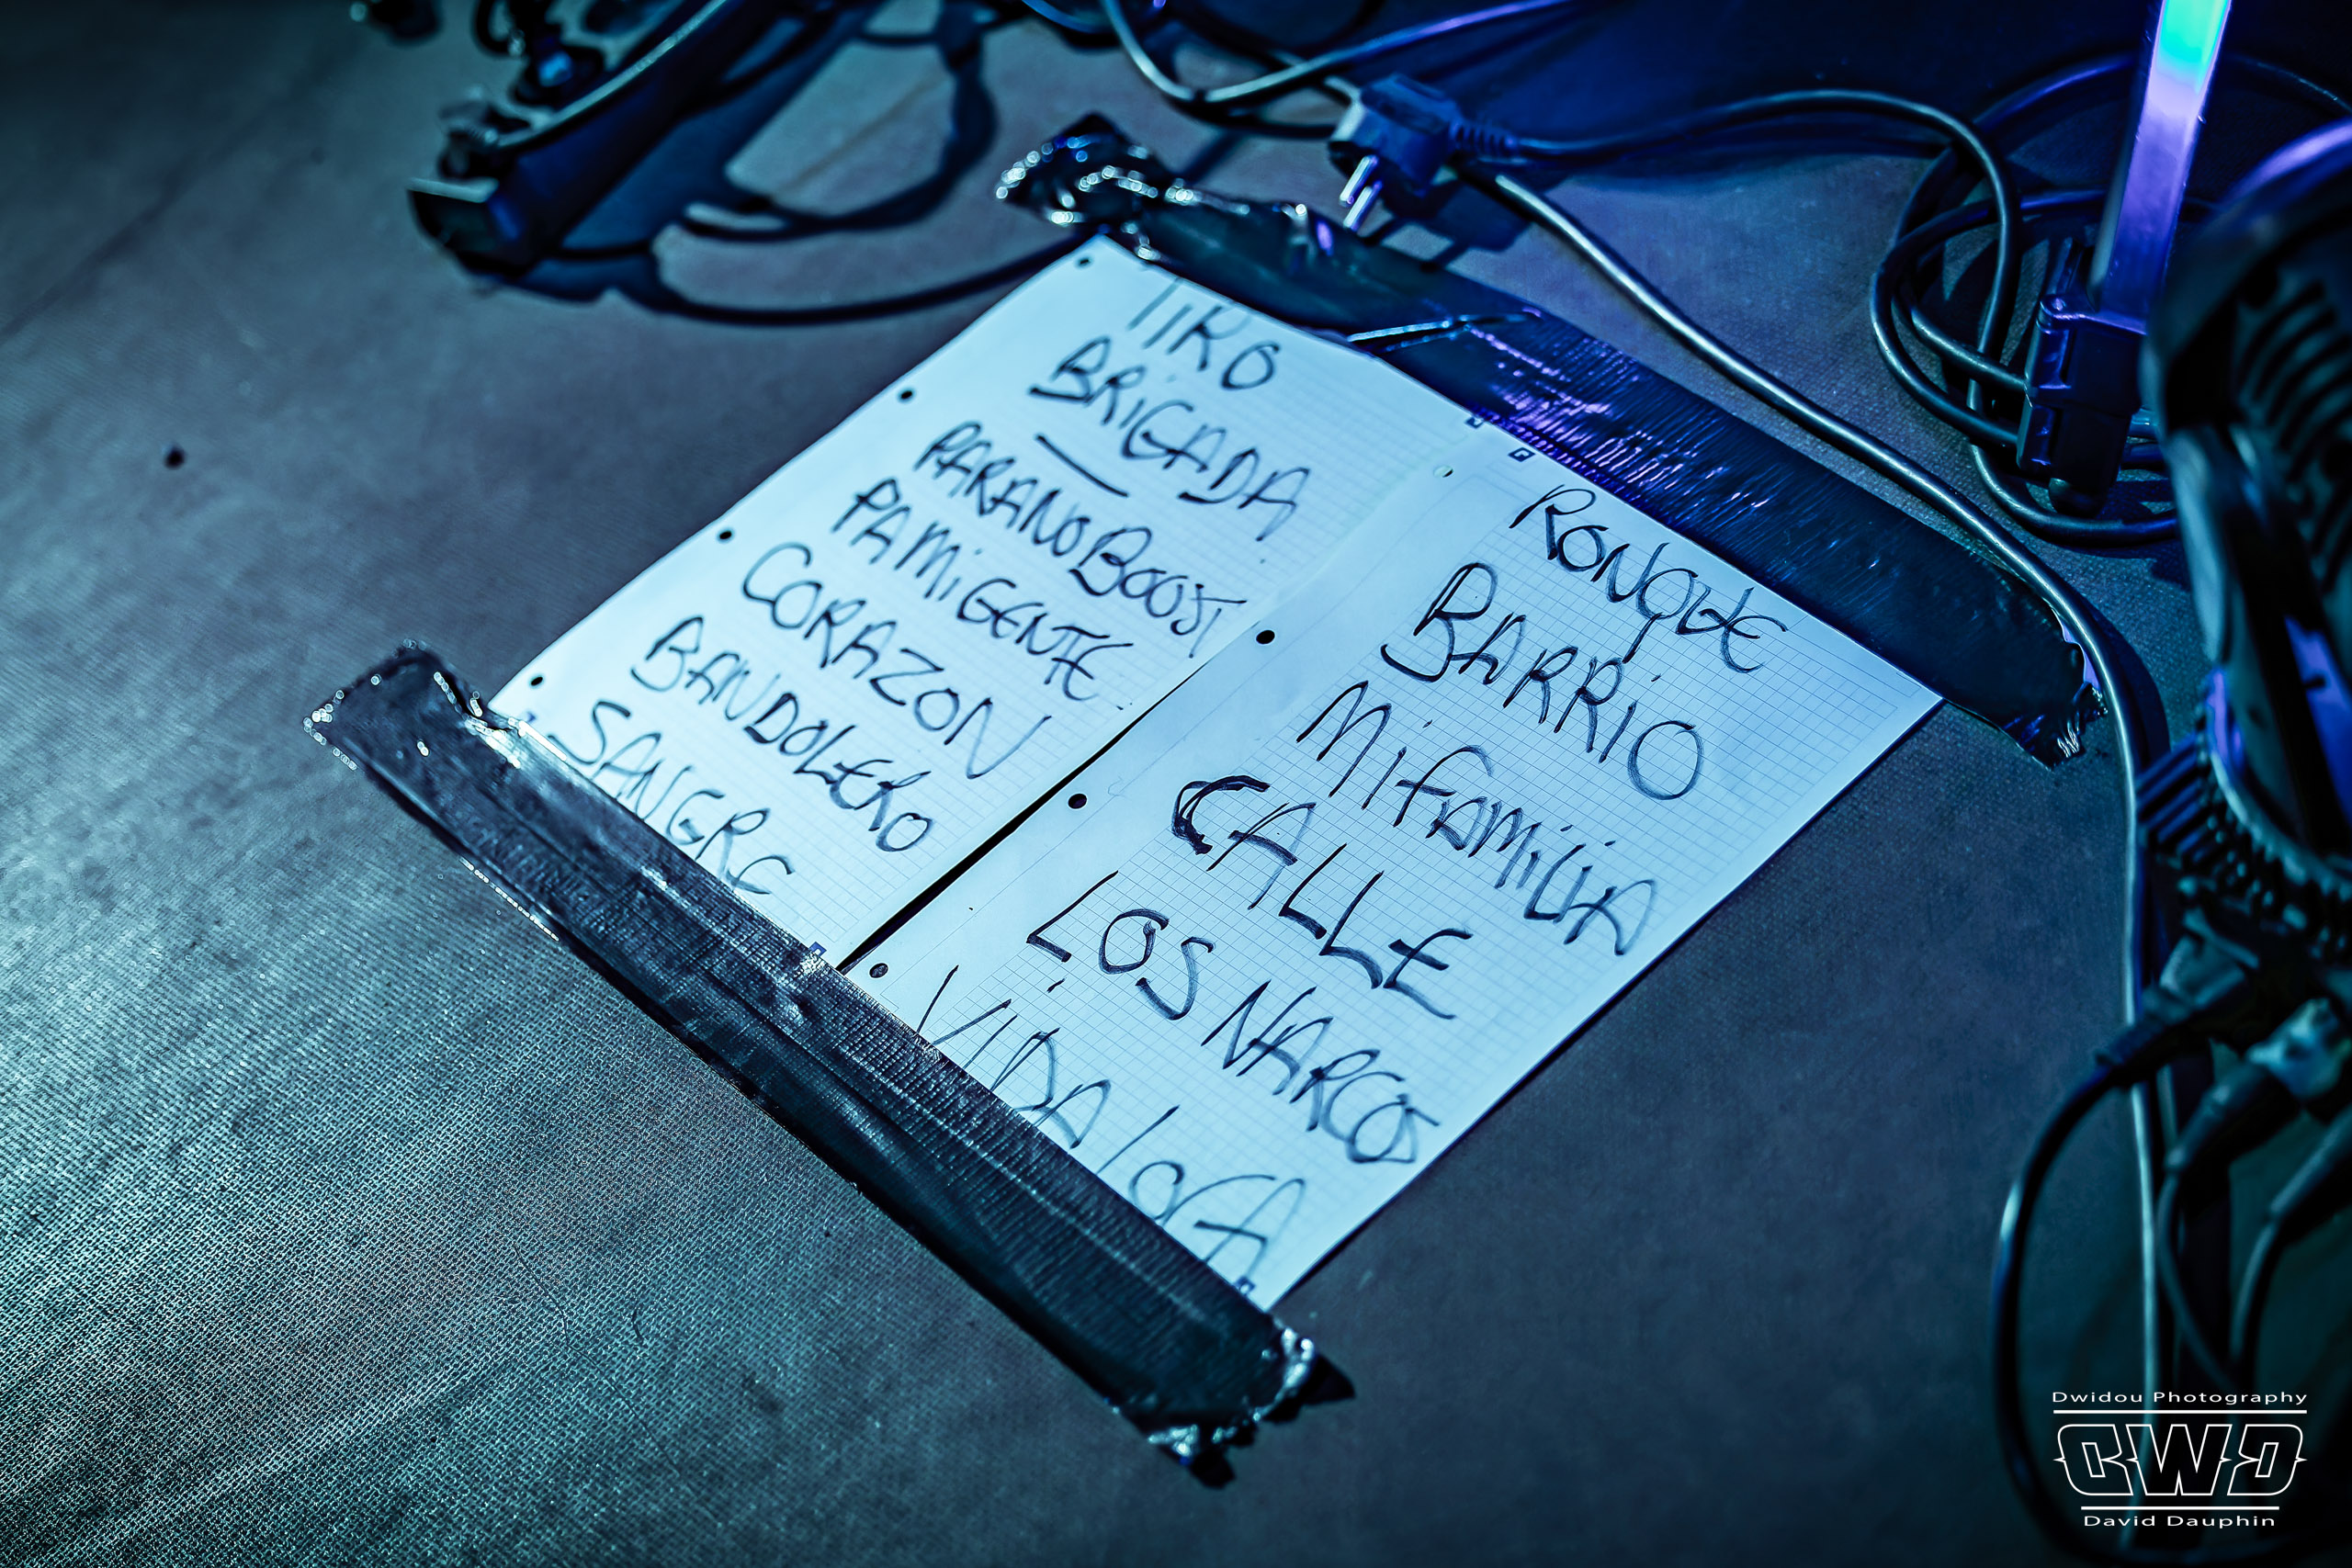 TIRO
BRIGADA
PARANO BOOST
PA MI GENTE
CORAZON
BANDOLERO
SANGRE
RONQUE
BARRIO
Mi FAMILIA
CALLE
LOS NARCOS
VIDA LOCA
Dwidou Photography
DWD
David Dauphin